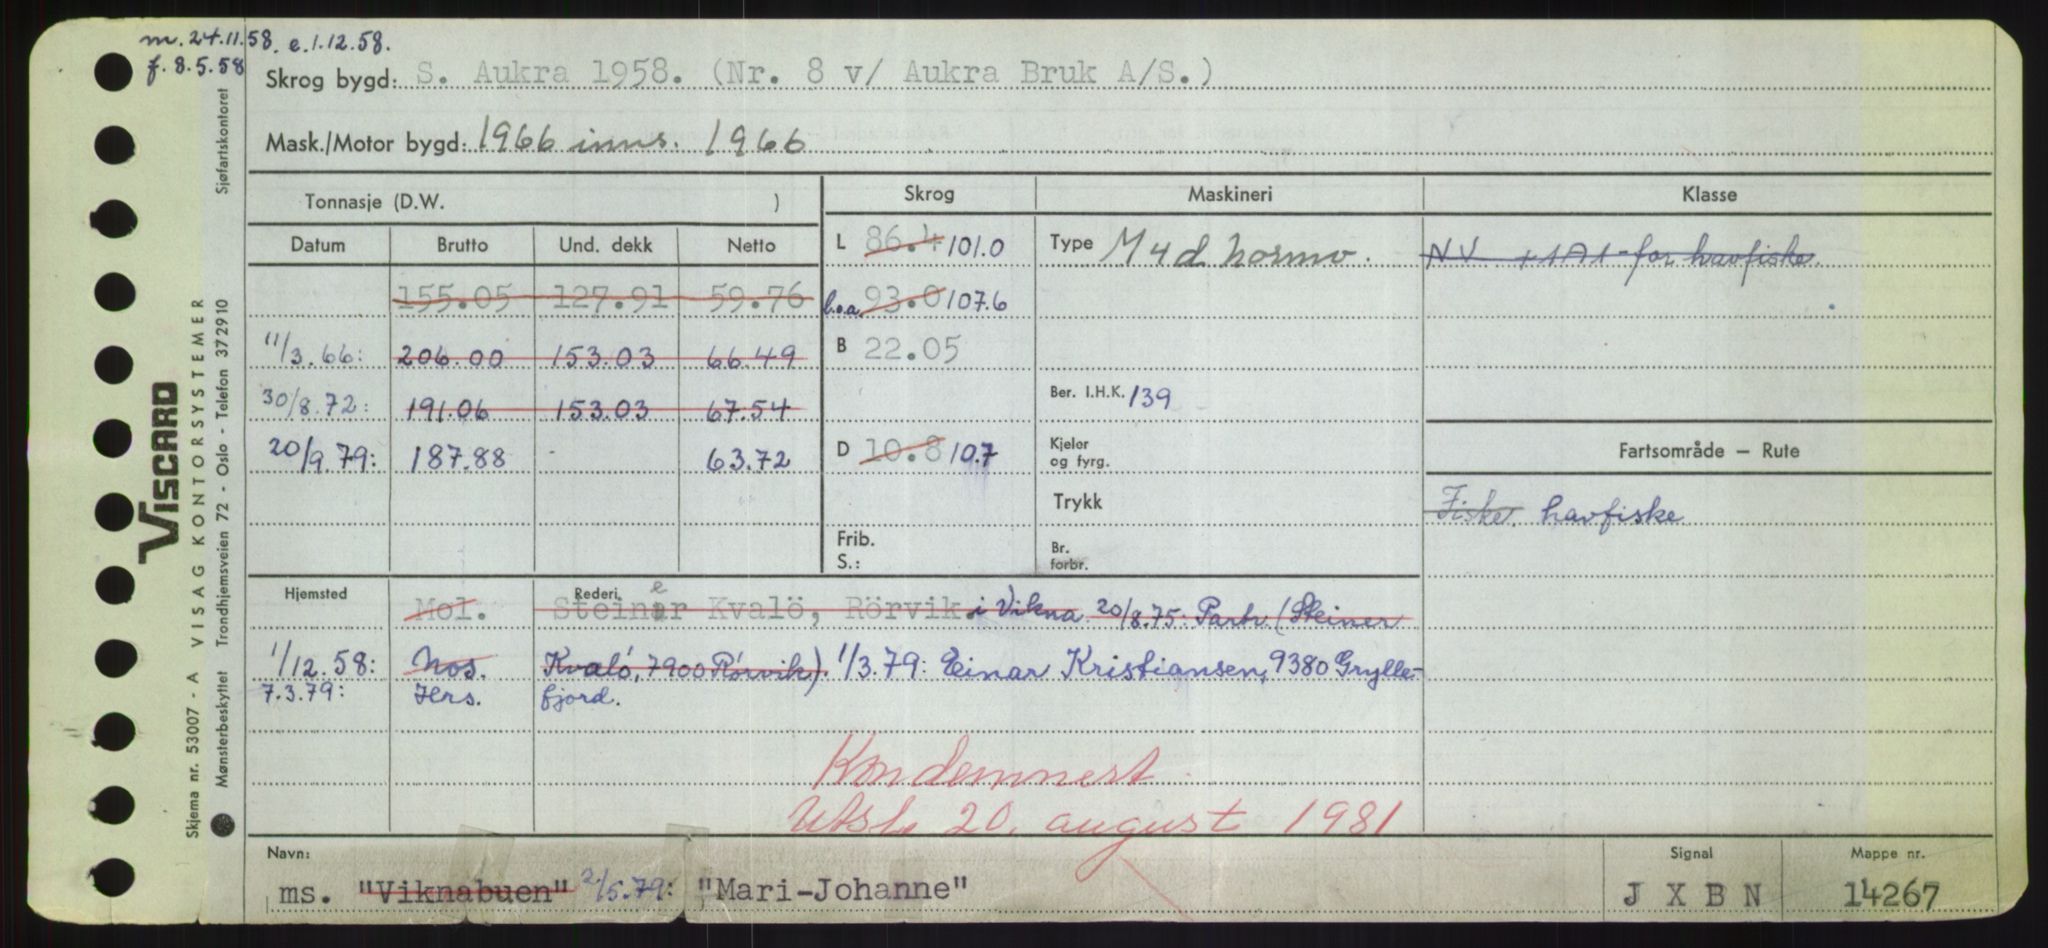 m. 24.11.58. e.1.12.58.
f. 8.5.58
Skrog bygd: S. Aukra 1958. (Nr. 8 v/ Aukra Bruk A/S.)
Mask./Motor bygd: 1966 inns. 1966
Tonnasje (D.W. )
Skrog Maskineri Klasse
Datum Brutto Und. dekk Netto
L 86.4 101.0 Type M4d hormo. NV +1A1-for havfiske
155.05 127.91 59.76
b.o.a. 93.0 107.6
11/3.66: 206.00 153.03 66.49
B 22.05
30/8.72: 191.06 153.03 67.54
Ber. I.H.K. 139
20/9.79: 187.88 - 63.72
D 10.8 10.7 Kjeler og fyrg. Fartsområde – Rute
Trykk Fiske. havfiske
Frib.
S.:
Br. forbr.
Hjemsted Mol. Rederi Steinar e Kvalö, Rörvik. i Vikna 20/8.75: Partr. (Steiner
1/12.58: Nos. Kvaló, 7900 Rórvik). 1/3.79: Einar Kristiansen, 9380 Grylle-
7.3.79: Hrs. fjord.
Kondemnert.
Utsl. 20. august 1981
Navn: Signal Mappe nr.
ms. "Viknabuen" 2/5.79: "Mari-Johanne" J X B N 14267
VISCARD
Skjema nr. 53007 - A VISAG KONTORSYSTEMER
Mønsterbeskyttet Trondhjemsveien 72 - Oslo - Telefon 372910 Sjøfartskontoret